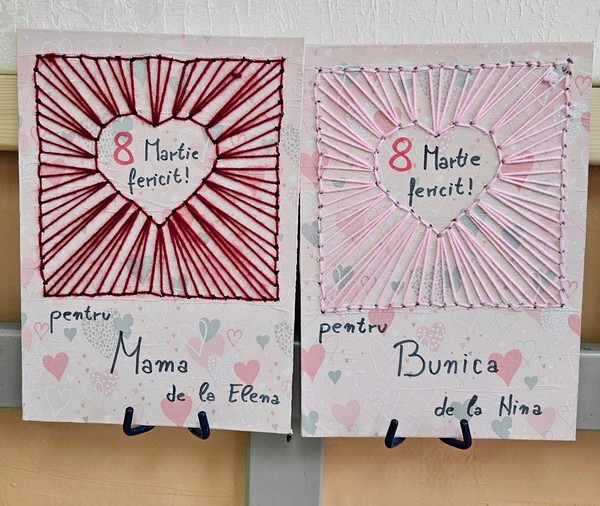 8 Martie
fericit!
pentru
Mama
de la Elena
8 Martie
fericit!
pentru
Bunica
de la Nina